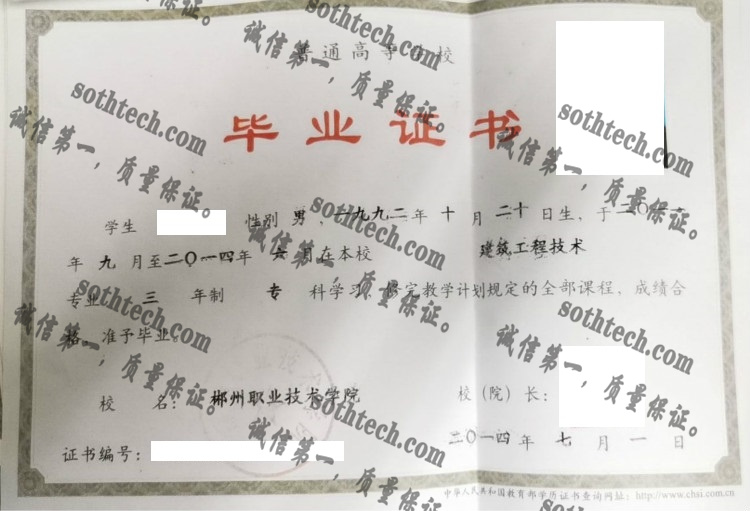 普通高等学校
毕业证书
学生 性别 男，一九九二年 十 月 二十 日生，于二〇一一
年 九 月至二〇一四年 六 月在本校 建筑工程技术
专业 三 年制 专 科学习，修完教学计划规定的全部课程，成绩合
格，准予毕业。
校 名：郴州职业技术学院 校（院）长：
二〇一四年 七 月 一 日
证书编号：
中华人民共和国教育部学历证书查询网址：http://www.chsi.com.cn
sothtech.com
诚信第一，质量保证。
sothtech.com
诚信第一，质量保证。
sothtech.com
诚信第一，质量保证。
sothtech.com
诚信第一，质量保证。
sothtech.com
诚信第一，质量保证。
sothtech.com
诚信第一，质量保证。
sothtech.com
诚信第一，质量保证。